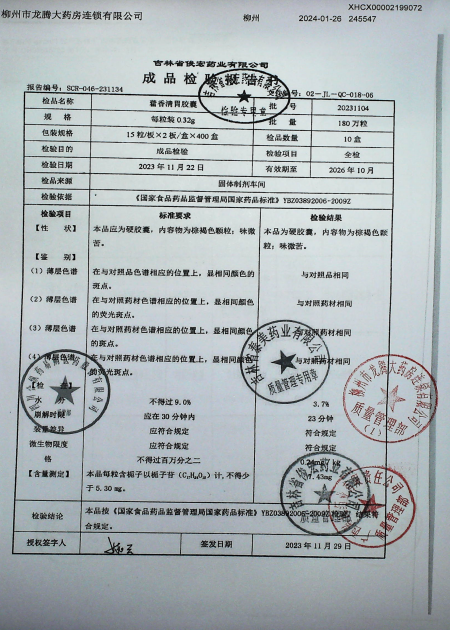 XHCX00002199072
柳州市龙腾大药房连锁有限公司 柳州 2024-01-26 245547
吉林省俊宏药业有限公司
成品检验报告书
报告编号：SCR-046-231134 文件编号：02-JL-QC-018-06
检品名称 藿香清胃胶囊 批 号 20231104
规 格 每粒装 0.32g 批 量 180万粒
包装规格 15粒/板×2板/盒×400盒 检品数量 10盒
检验目的 成品检验 检验项目 全检
检验日期 2023年11月22日 有效期至 2026年10月
检品来源 固体制剂车间
检验依据 《国家食品药品监督管理局国家药品标准》YBZ03892006-2009Z
检验项目 标准要求 检验结果
【性 状】 本品应为硬胶囊，内容物为棕褐色颗粒；味微苦。 本品为硬胶囊，内容物为棕褐色颗粒；味微苦。
【鉴 别】
(1) 薄层色谱 在与对照品色谱相应的位置上，显相同颜色的斑点。 与对照品相同
(2) 薄层色谱 在与对照药材色谱相应的位置上，显相同颜色的荧光斑点。 与对照药材相同
(3) 薄层色谱 在与对照药材色谱相应的位置上，显相同颜色的斑点。 与对照药材相同
(4) 薄层色谱 在与对照药材色谱相应的位置上，显相同颜色的荧光斑点。 与对照药材相同
【检 】
水 不得过 9.0% 3.7%
崩解时限 应在 30 分钟内 23 分钟
装量差异 应符合规定 符合规定
微生物限度 应符合规定 符合规定
不得过百万分之二
【含量测定】 本品每粒含栀子以栀子苷 计，不得少于 5.30 mg。 7.43mg
检验结论 本品按《国家食品药品监督管理局国家药品标准》YBZ03892006-2009Z检验，结果符合规定。
授权签字人 签发日期 2023年11月29日
检验专用章
质量管理专用章
柳州市龙腾大药房连锁有限公司
质量管理部
(1)